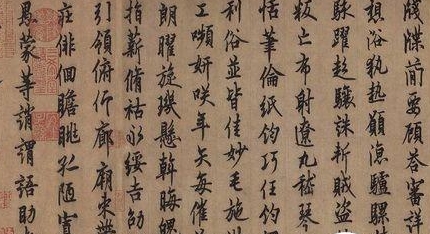 牋牒簡要顧答審詳
想浴執熱願涼驢騾
駭躍超驤誅斬賊盜
叛亡布射遼丸嵇琴
恬筆倫紙鈞巧任釣
利俗並皆佳妙毛施
工嚬妍咲年矢每催
朗曜旋璣懸斡晦魄
指薪脩祜永綏吉劭
引領俯仰廊廟束帶
莊徘徊瞻眺孤陋寡
愚蒙等誚謂語助